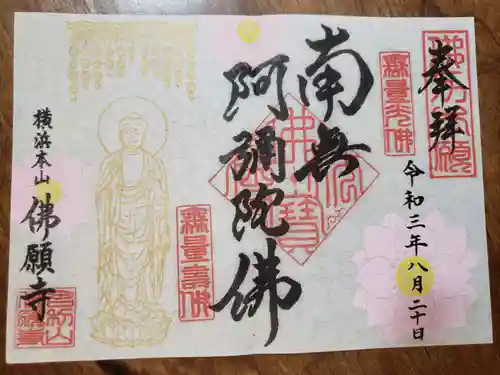 奉拝
令和三年八月二十日
無量光佛
南無
阿彌陀佛
佛法僧寶
無量壽佛
横浜本山
佛願寺